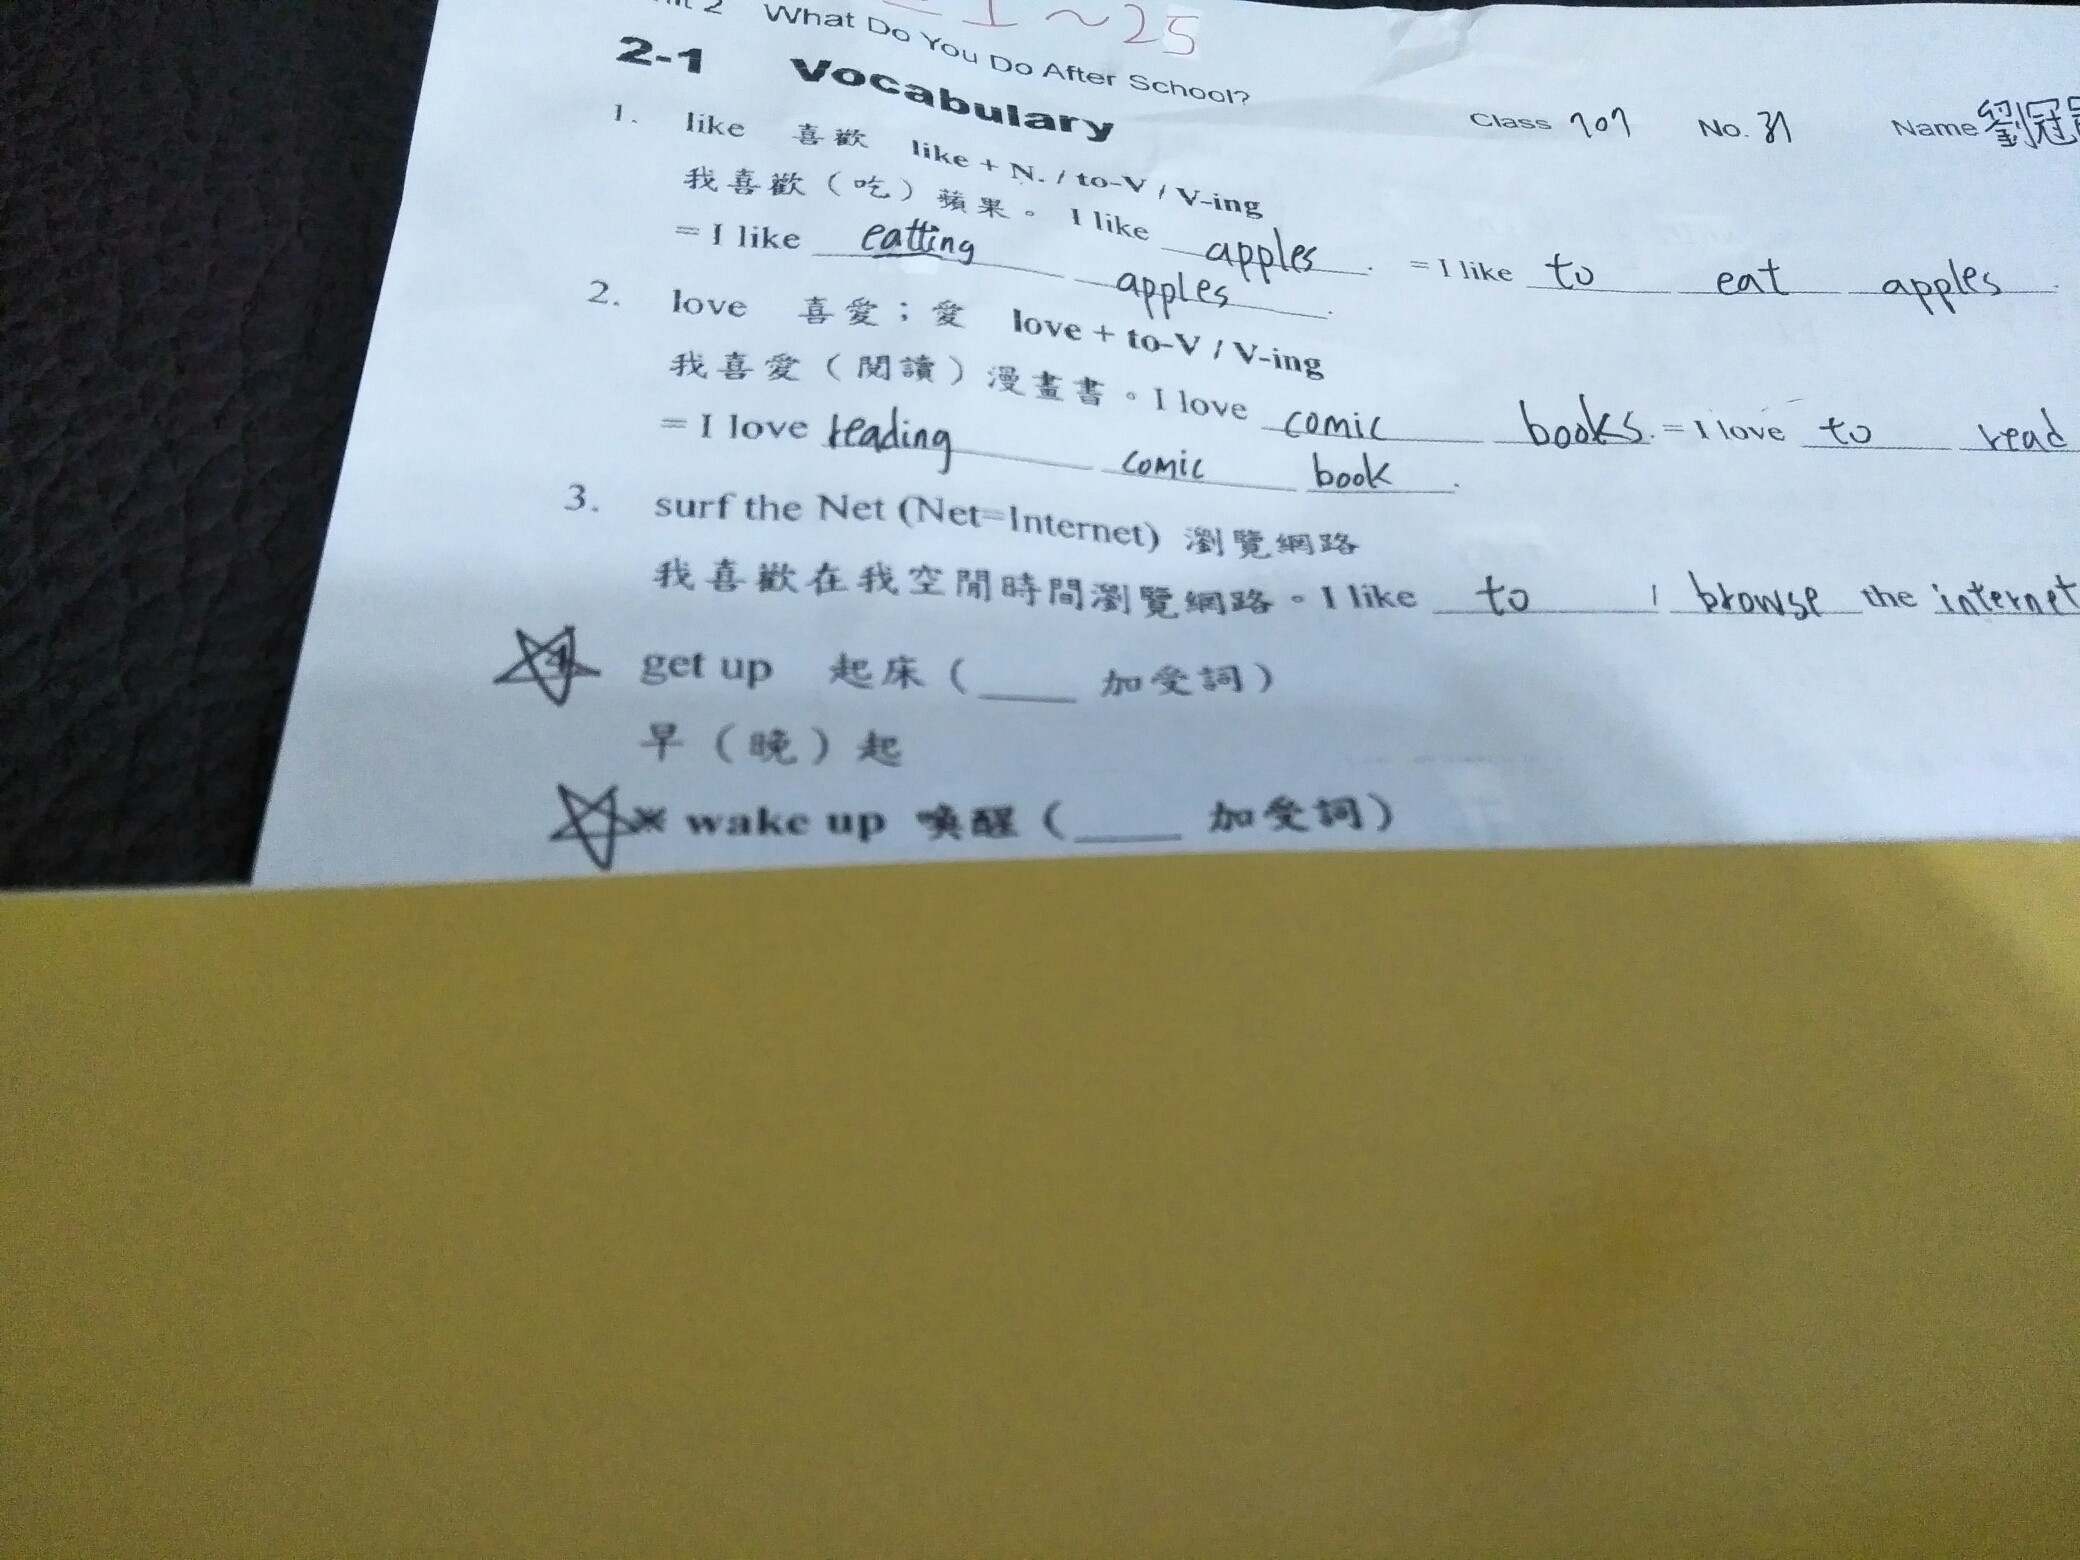 2 What Do You Do After School? 1~25
2-1 Vocabulary
Class 707 No. 31 Name 劉冠
1. like 喜歡 like + N. / to-V / V-ing
我喜歡（吃）蘋果。 I like apples. = I like to eat apples.
= I like eatting apples.
2. love 喜愛；愛 love + to-V / V-ing
我喜愛（閱讀）漫畫書。I love comic books. = I love to read
= I love reading comic book.
3. surf the Net (Net=Internet) 瀏覽網路
我喜歡在我空閒時間瀏覽網路。I like to browse the internet
4 get up 起床（____ 加受詞）
早（晚）起
※ wake up 喚醒（____ 加受詞）